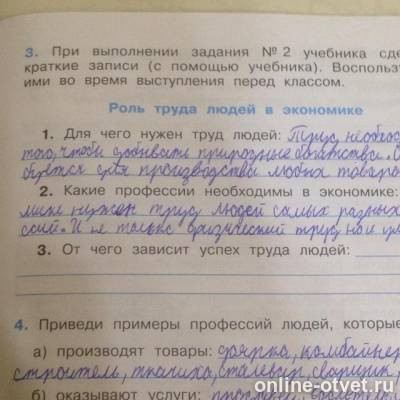 3. При выполнении задания № 2 учебника сде
краткие записи (с помощью учебника). Воспользу
ими во время выступления перед классом.
Роль труда людей в экономике
1. Для чего нужен труд людей: Труд необход
того, чтобы добывать природные богатства. О
для производства любых товаро
2. Какие профессии необходимы в экономике:
мике нужен труд людей самых разных
ссий. И не только физический труд, но и ум
3. От чего зависит успех труда людей:
4. Приведи примеры профессий людей, которые
а) производят товары: доярка, комбайнер
строитель, ткачиха, сталевар, сварщик,
б) оказывают услуги: продавец,
online-otvet.ru